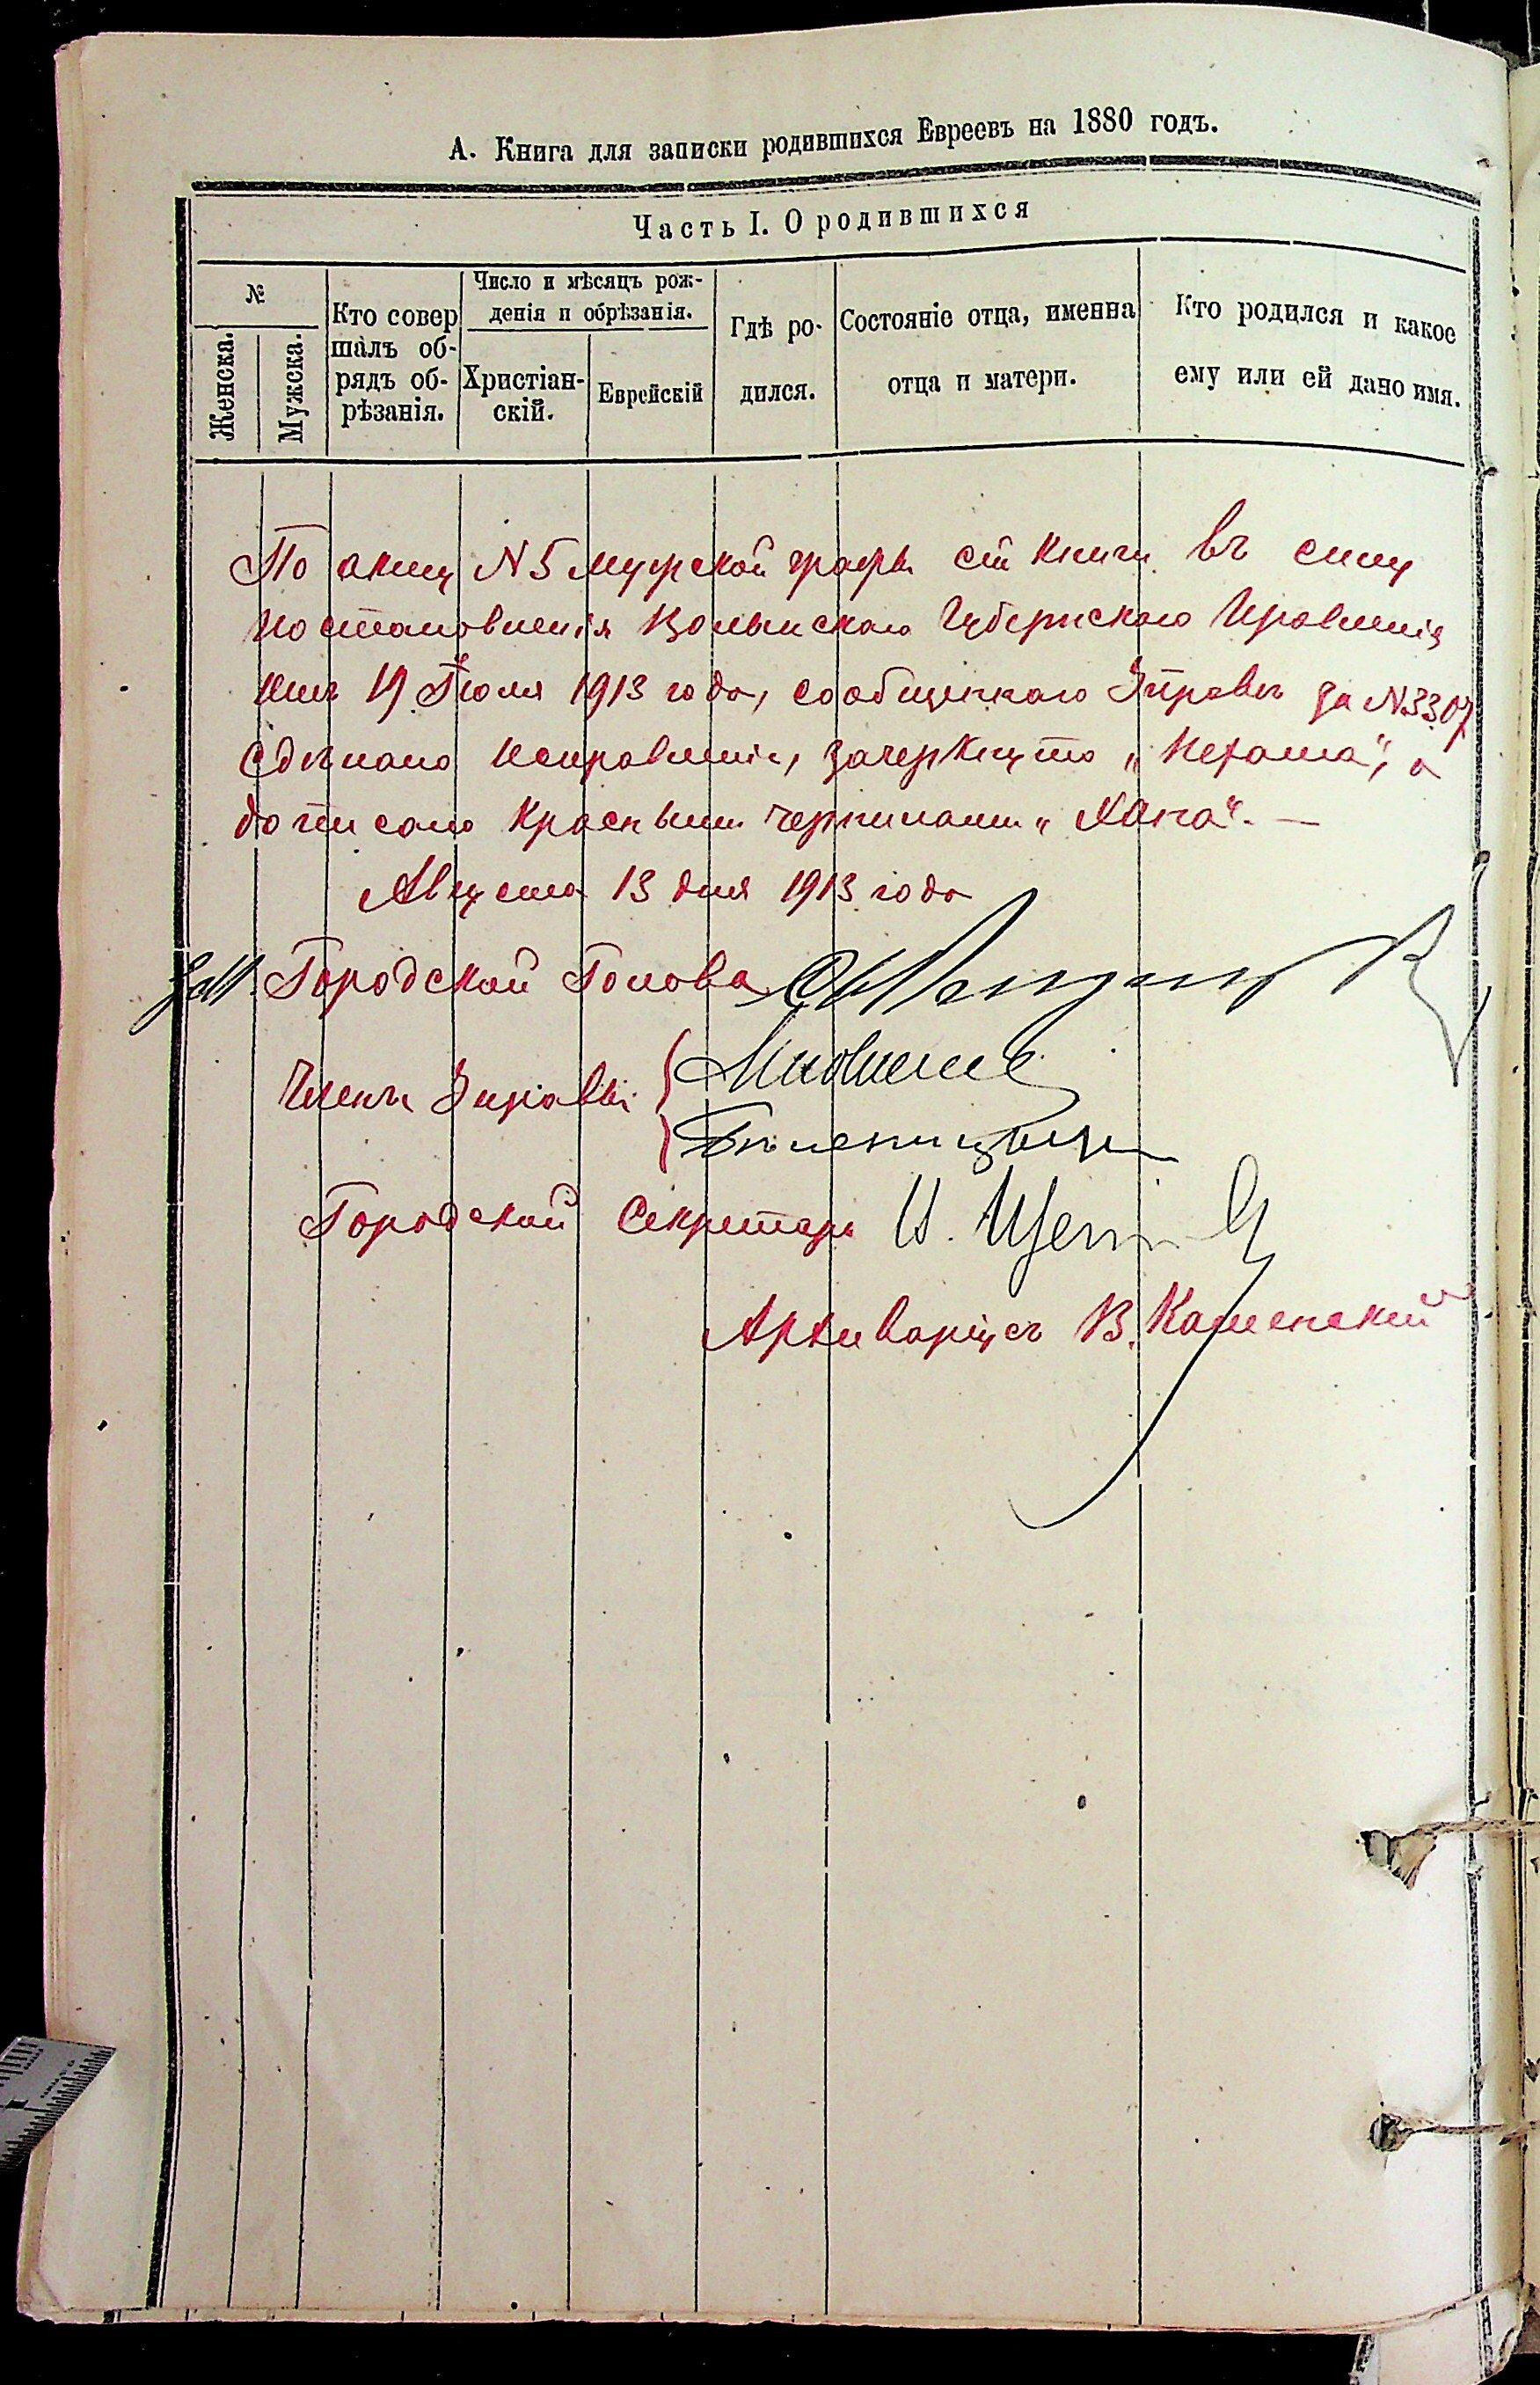 А. Книга для записки родившихся Евреевъ на 1880 годъ.
Часть I. О родившихся
№
Женска.
Мужска.
Кто совер
шалъ об-
рядъ об-
рѣзанія.
Число и мѣсяцъ рож-
денія и обрѣзанія.
Христіан-
скій.
Еврейскій
Гдѣ ро-
дился.
Состояніе отца, именна
отца и матери.
Кто родился и какое
ему или ей дано имя.
По акту N 5 мужской графы сей книги въ силу
постановленія Волынскаго Губернскаго Правленія
19 Іюля 1913 года, сообщеннаго Управѣ за N 3307
сдѣлано исправленіе, зачеркнуто „Нехама“, а
дописано красными чернилами „Хана“. —
Августа 13 дня 1913 года
Городской Голова
Члены Управы
Городской Секретарь
Архиваріусъ В. Каменскій